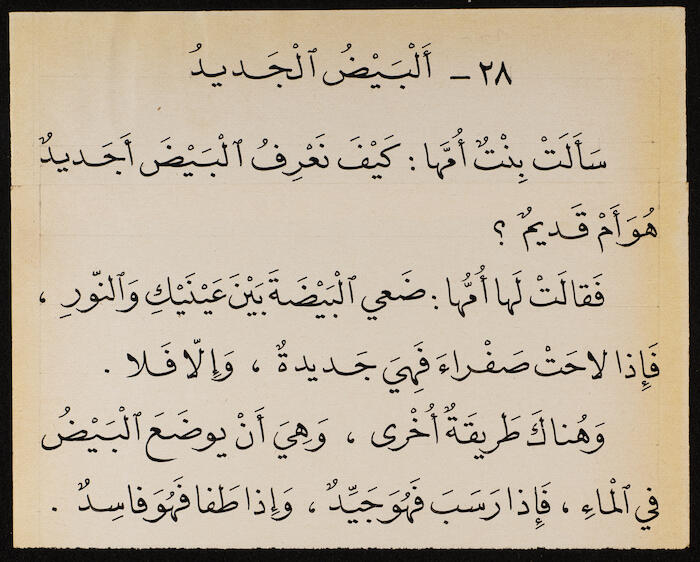 ٢٨ – أَلْبَيْضُ ٱلْجَديدُ
سَأَلَتْ بِنْتٌ أُمَّها : كَيْفَ نَعْرِفُ ٱلْبَيْضَ أَجَديدٌ
هُوَ أَمْ قَديمٌ ؟
فَقالَتْ لَها أُمُّها : ضَعي ٱلْبَيْضَةَ بَيْنَ عَيْنَيْكِ وَٱلنّورِ ،
فَإِذا لاحَتْ صَفْراءَ فَهِيَ جَديدةٌ ، وَإِلّا فَلا .
وَهُناكَ طَريقَةٌ أُخْرى ، وَهِيَ أَنْ يوضَعَ ٱلْبَيْضُ
في ٱلْماءِ ، فَإِذا رَسَبَ فَهُوَ جَيِّدٌ ، وَإِذا طَفا فَهُوَ فاسِدٌ .